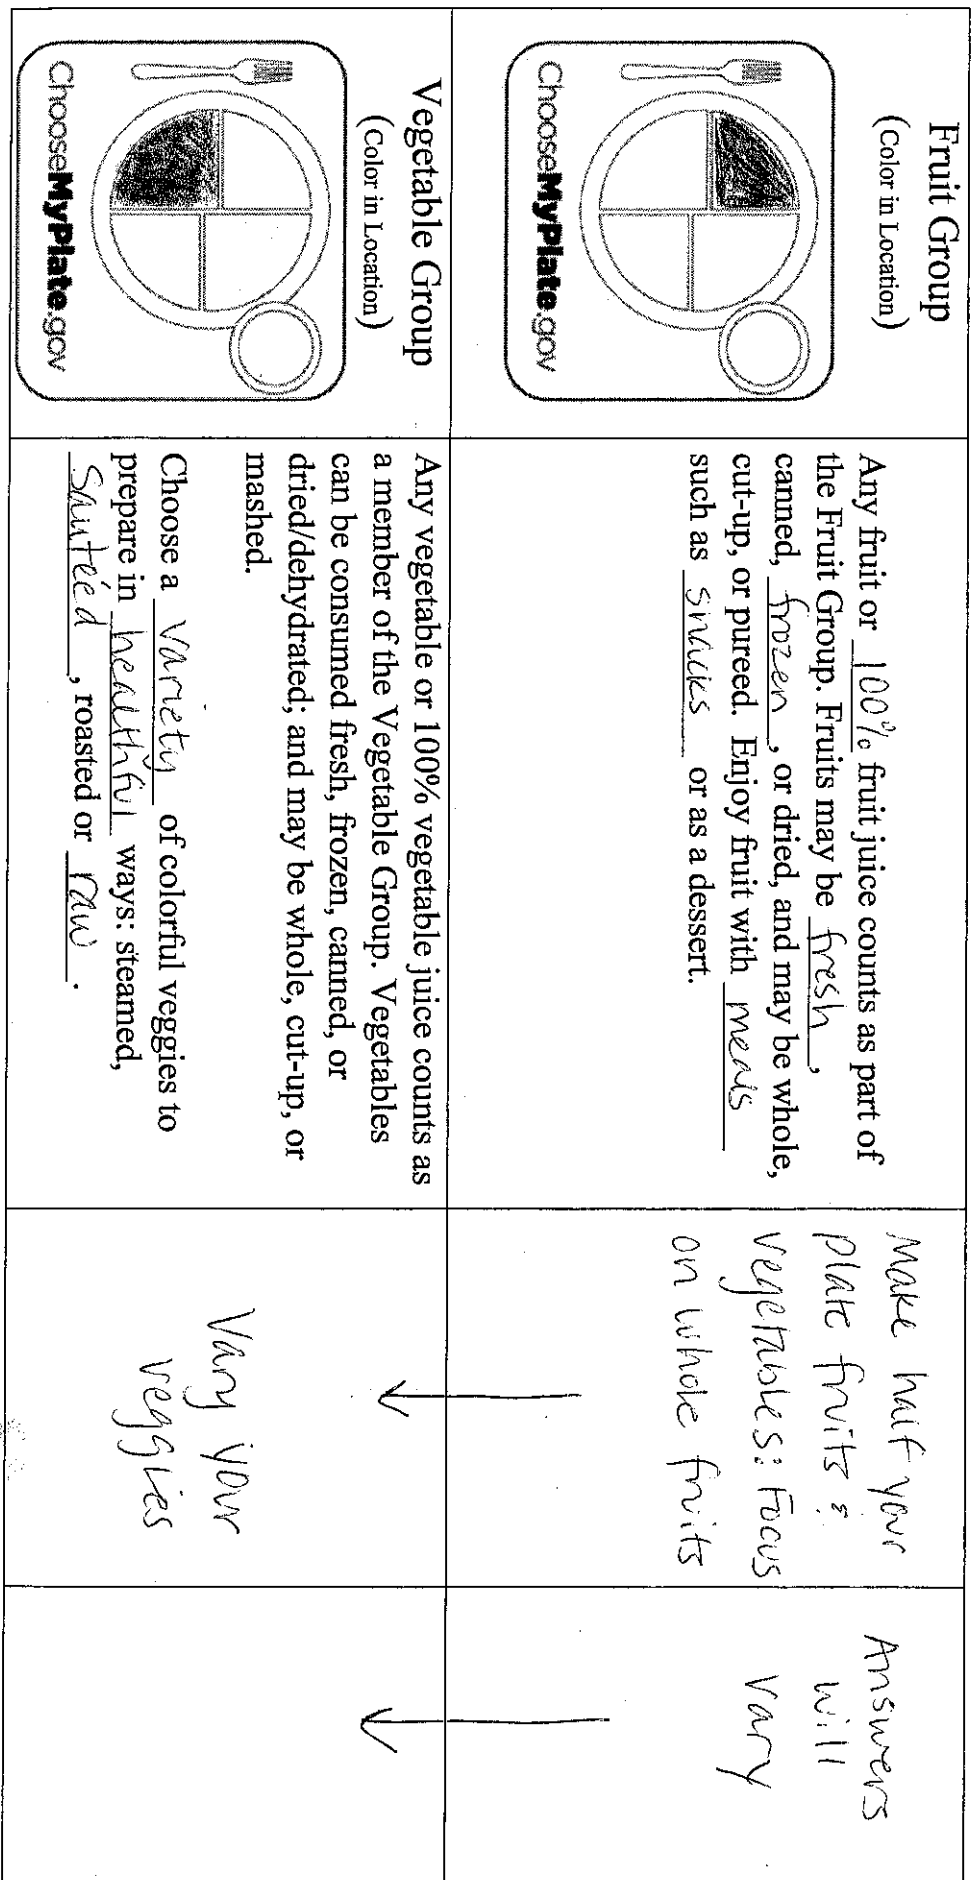 Fruit Group
(Color in Location)
ChooseMyPlate.gov
Any fruit or 100% fruit juice counts as part of
the Fruit Group. Fruits may be fresh,
canned, frozen, or dried, and may be whole,
cut-up, or pureed. Enjoy fruit with meals
such as snacks or as a dessert.
Make half your
plate fruits &
vegetables: Focus
on whole fruits
Answers
will
vary
Vegetable Group
(Color in Location)
ChooseMyPlate.gov
Any vegetable or 100% vegetable juice counts as
a member of the Vegetable Group. Vegetables
can be consumed fresh, frozen, canned, or
dried/dehydrated; and may be whole, cut-up, or
mashed.
Choose a variety of colorful veggies to
prepare in healthful ways: steamed,
Sauteéd, roasted or raw.
Vary your
veggies